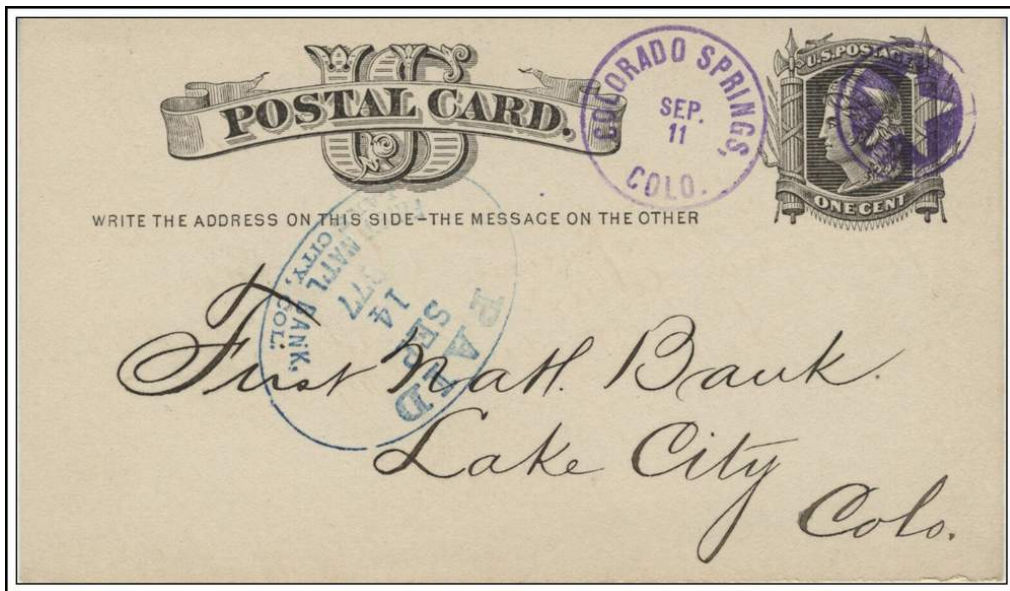 US
POSTAL CARD.
COLORADO SPRINGS,
SEP.
11
COLO.
U.S. POSTAGE
ONE CENT
WRITE THE ADDRESS ON THIS SIDE–THE MESSAGE ON THE OTHER
PAID
SEP
14
NAT'L BANK,
CITY, COL.
First Natl. Bank.
Lake City
Colo.